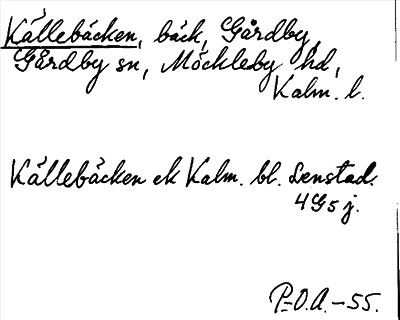 Källebäcken, bäck, Gårdby,
Gårdby sn, Möckleby hd,
Kalm. l.
Källebäcken ek Kalm. bl. Lenstad.
4G5j.
P-O.A.-55.